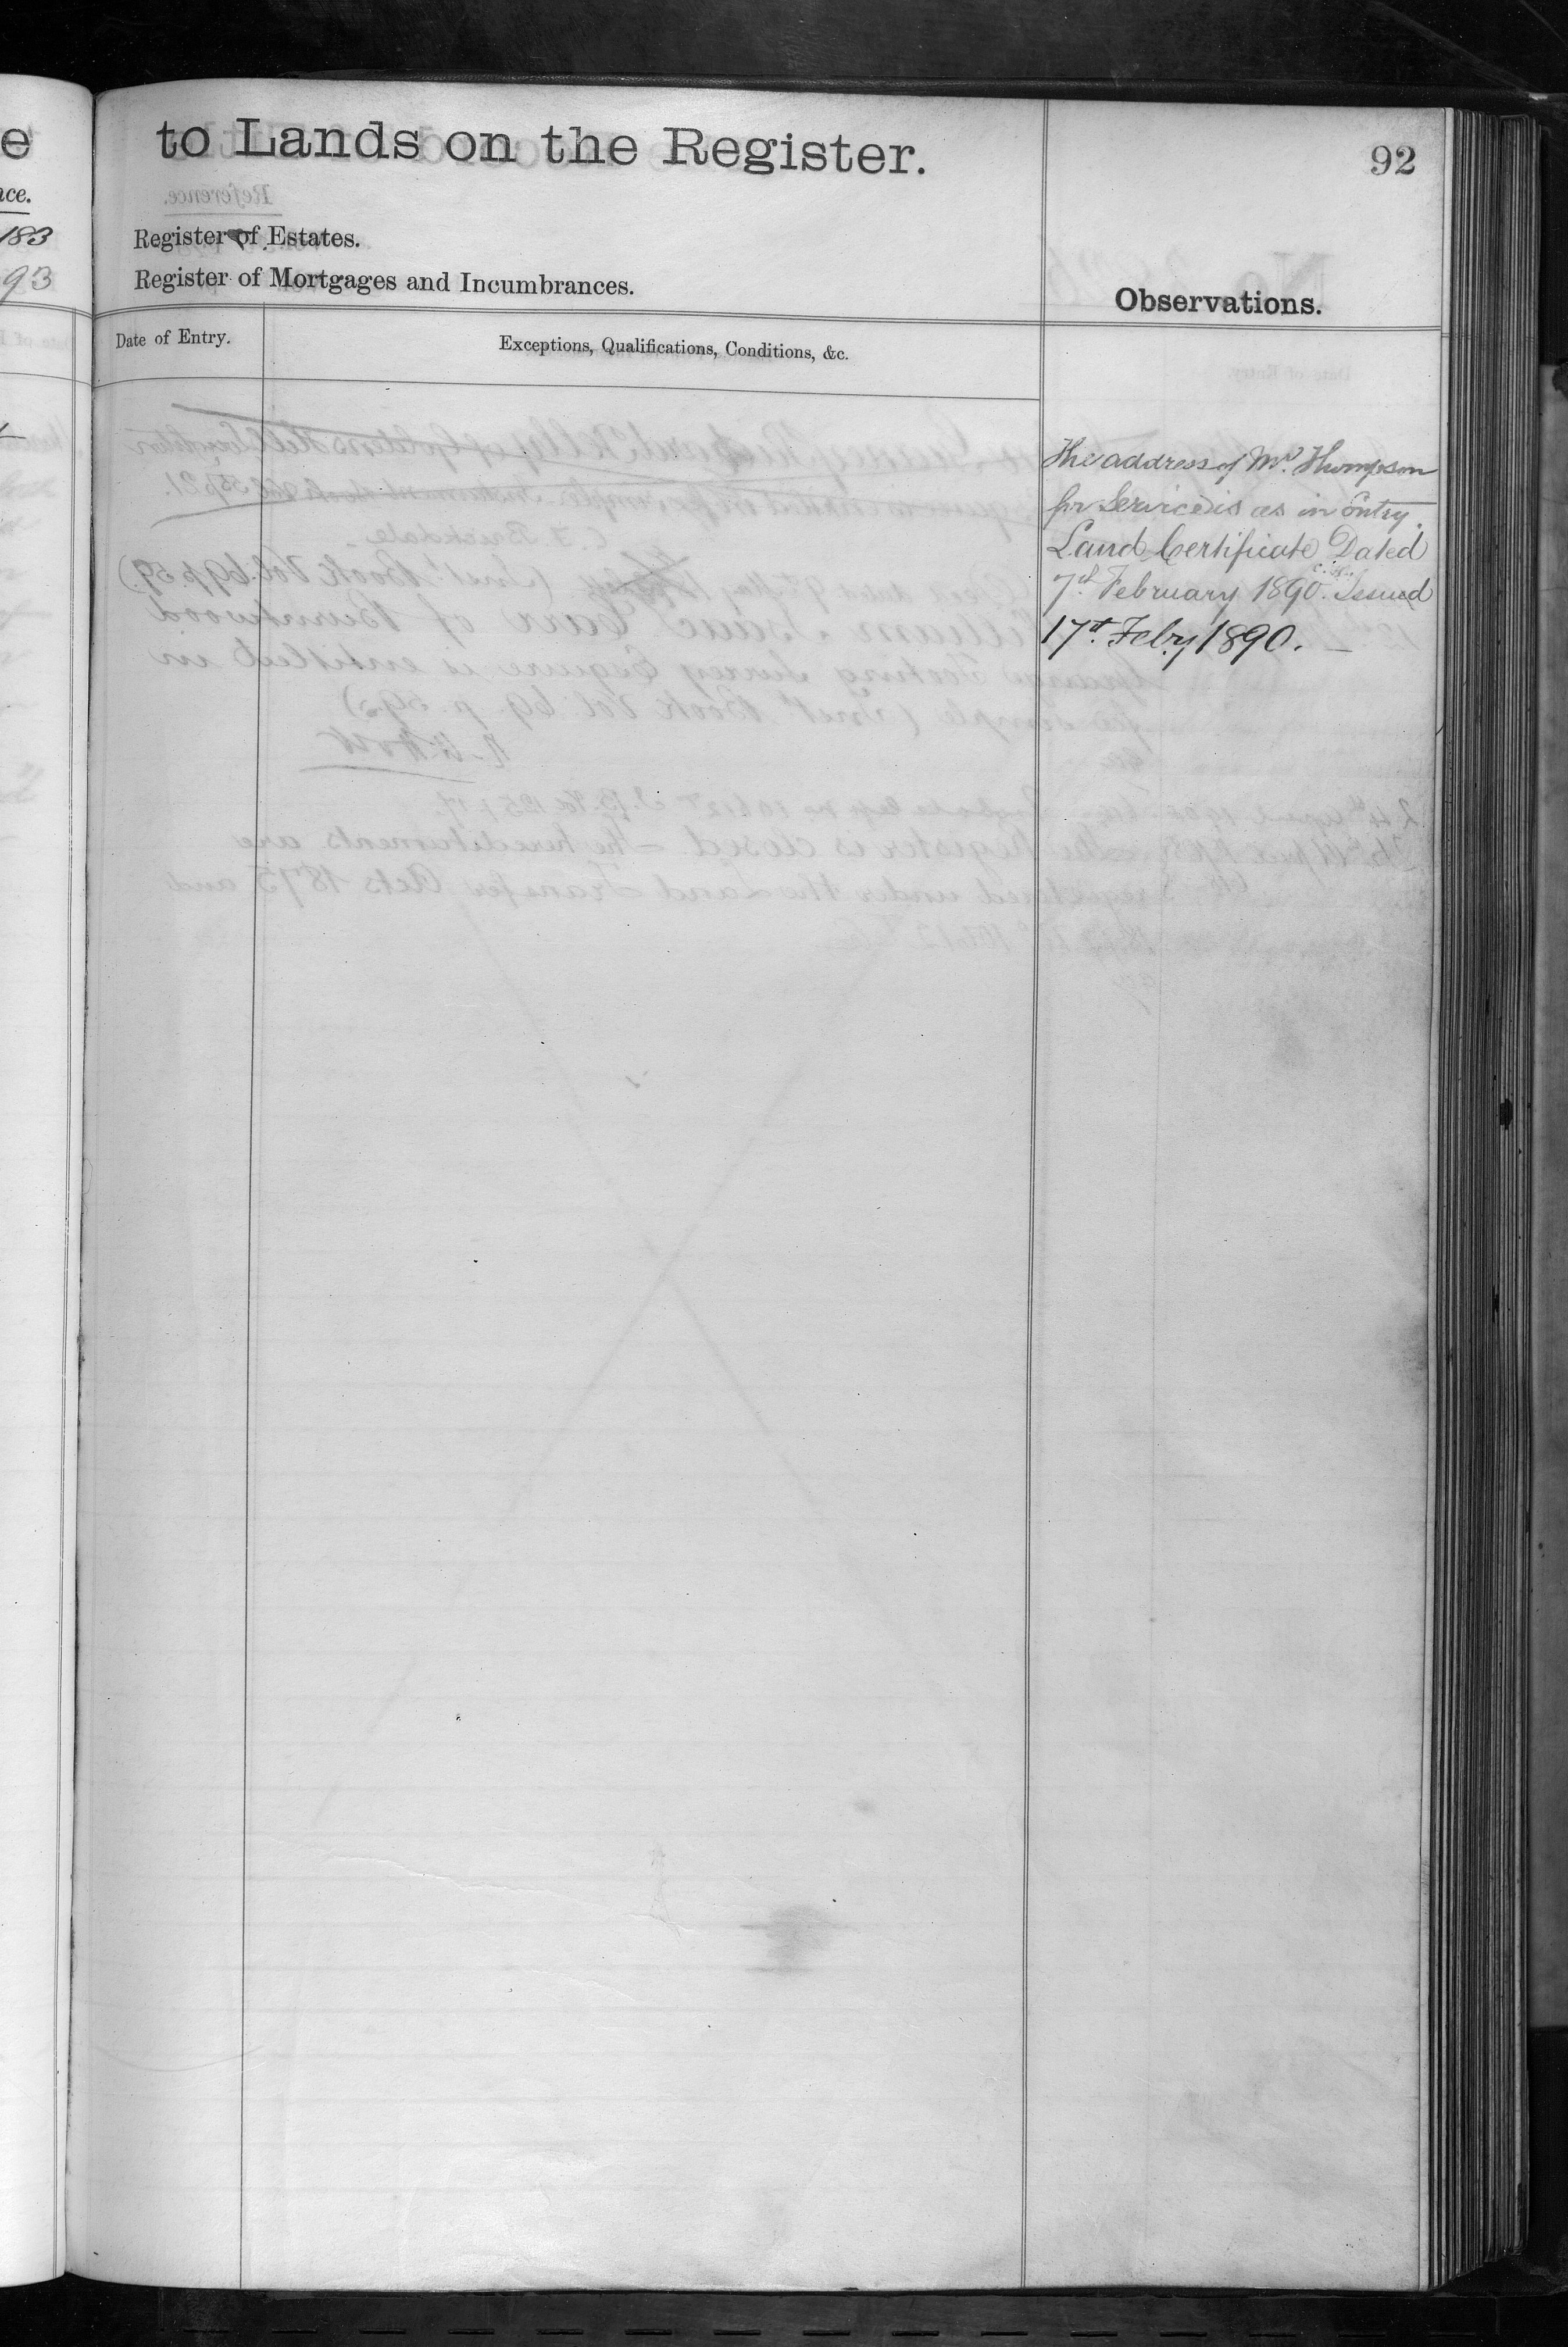 to Lands on the Register.
92
e
nce.
183
93
Register of Estates.
Register of Mortgages and Incumbrances.
Observations.
Date of Entry.
Exceptions, Qualifications, Conditions, &c.
The address of Mr. Thompson
for Service is as in Entry.
Land Certificate Dated
7th February 1890. Issued
17th Feby 1890.